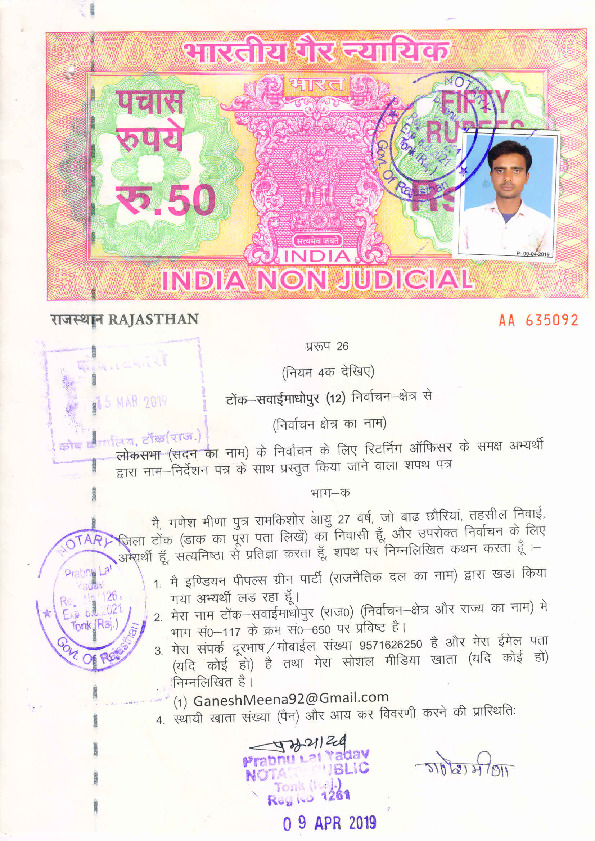 भारतीय गैर न्यायिक
भारत
पचास
रुपये
रु.50
FIFTY
RUPEES
RS
सत्यमेव जयते
INDIA
INDIA NON JUDICIAL
P. 09-04-2019
राजस्थान RAJASTHAN
AA 635092
15 MAR 2019
कोष कार्यालय, टोंक(राज.)
प्ररूप 26
(नियम 4क देखिए)
टोंक–सवाईमाधोपुर (12) निर्वाचन–क्षेत्र से
(निर्वाचन क्षेत्र का नाम)
लोकसभा (सदन का नाम) के निर्वाचन के लिए रिटर्निंग ऑफिसर के समक्ष अभ्यर्थी
द्वारा नाम–निर्देशन पत्र के साथ प्रस्तुत किया जाने वाला शपथ पत्र
भाग–क
मै, गणेश मीणा पुत्र रामकिशोर आयु 27 वर्ष, जो बाढ छौरियां, तहसील निवाई,
जिला टोंक (डाक का पूरा पता लिखें) का निवासी हूँ, और उपरोक्त निर्वाचन के लिए
अभ्यर्थी हूँ, सत्यनिष्ठा से प्रतिज्ञा करता हूँ, शपथ पर निम्नलिखित कथन करता हूँ :–
1. मै इण्डियन पीपल्स ग्रीन पार्टी (राजनैतिक दल का नाम) द्वारा खडा किया
गया अभ्यर्थी लड रहा हूँ।
2. मेरा नाम टोंक–सवाईमाधोपुर (राज0) (निर्वाचन–क्षेत्र और राज्य का नाम) मे
भाग सं0–117 के क्रम स0–650 पर प्रविष्ट है।
3. मेरा संपर्क दूरभाष/मोबाईल संख्या 9571626250 है और मेरा ईमेल पता
(यदि कोई हो) है तथा मेरा सोशल मीडिया खाता (यदि कोई हो)
निम्नलिखित है।
(1) GaneshMeena92@Gmail.com
4. स्थायी खाता संख्या (पैन) और आय कर विवरणी करने की प्रास्थितिः
NOTARY
Prabhu Lal
Yadav
Tonk (Raj.)
Govt. Of Rajasthan
Prabhu Lal Yadav
NOTARY PUBLIC
Tonk (Raj.)
Reg No 1261
गणेश मीणा
09 APR 2019